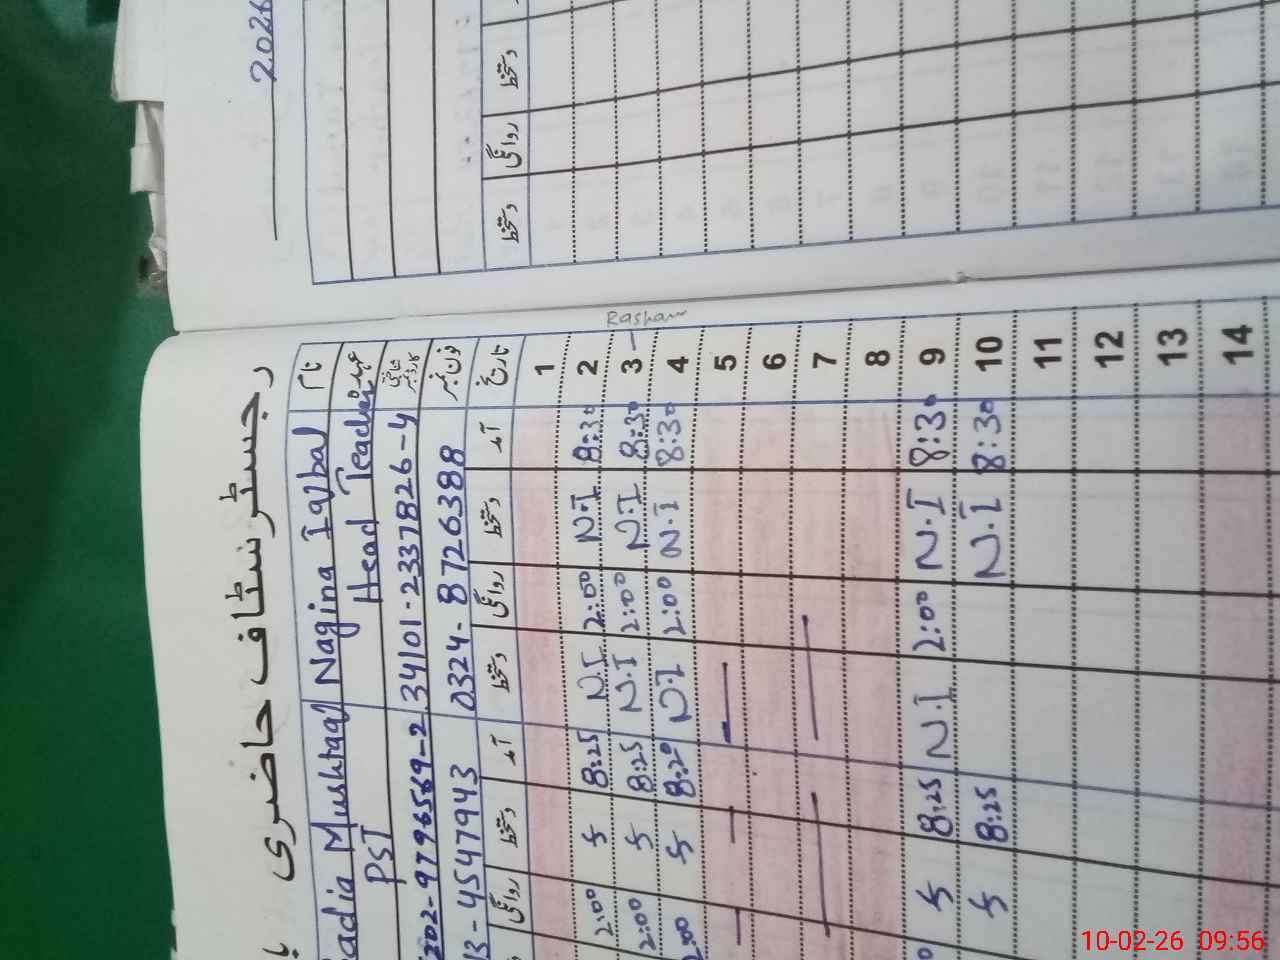 2026
رجسٹر سٹاف حاضری
نام Nagina Iqbal Mushtaq
عہدہ Head Teacher PST
شناختی کارڈ نمبر 34101-2337826-4
فون نمبر 0324-8726388
تاریخ آمد دستخط روانگی دستخط آمد دستخط روانگی
دستخط روانگی دستخط
1
2 8:30 N.I 2:00 N.I 8:25 5 2:00
Rashan
3 8:30 N.I 2:00 N.I 8:25 5 2:00
4 8:30 N.I 2:00 N.I 8:20 5 2:00
5
6
7
8
9 8:30 N.I 2:00 N.I 8:25 5
10 8:30 N.I 8:25 5
11
12
13
14
10-02-26 09:56